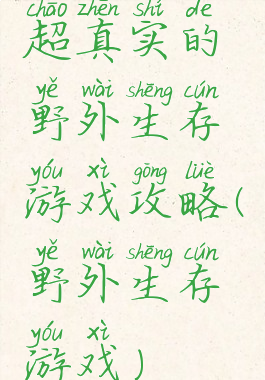 chāo zhēn shí de
超真实的
yě wài shēng cún
野外生存
yóu xì gōng lüè
游戏攻略(
yě wài shēng cún
野外生存
yóu xì
游戏)